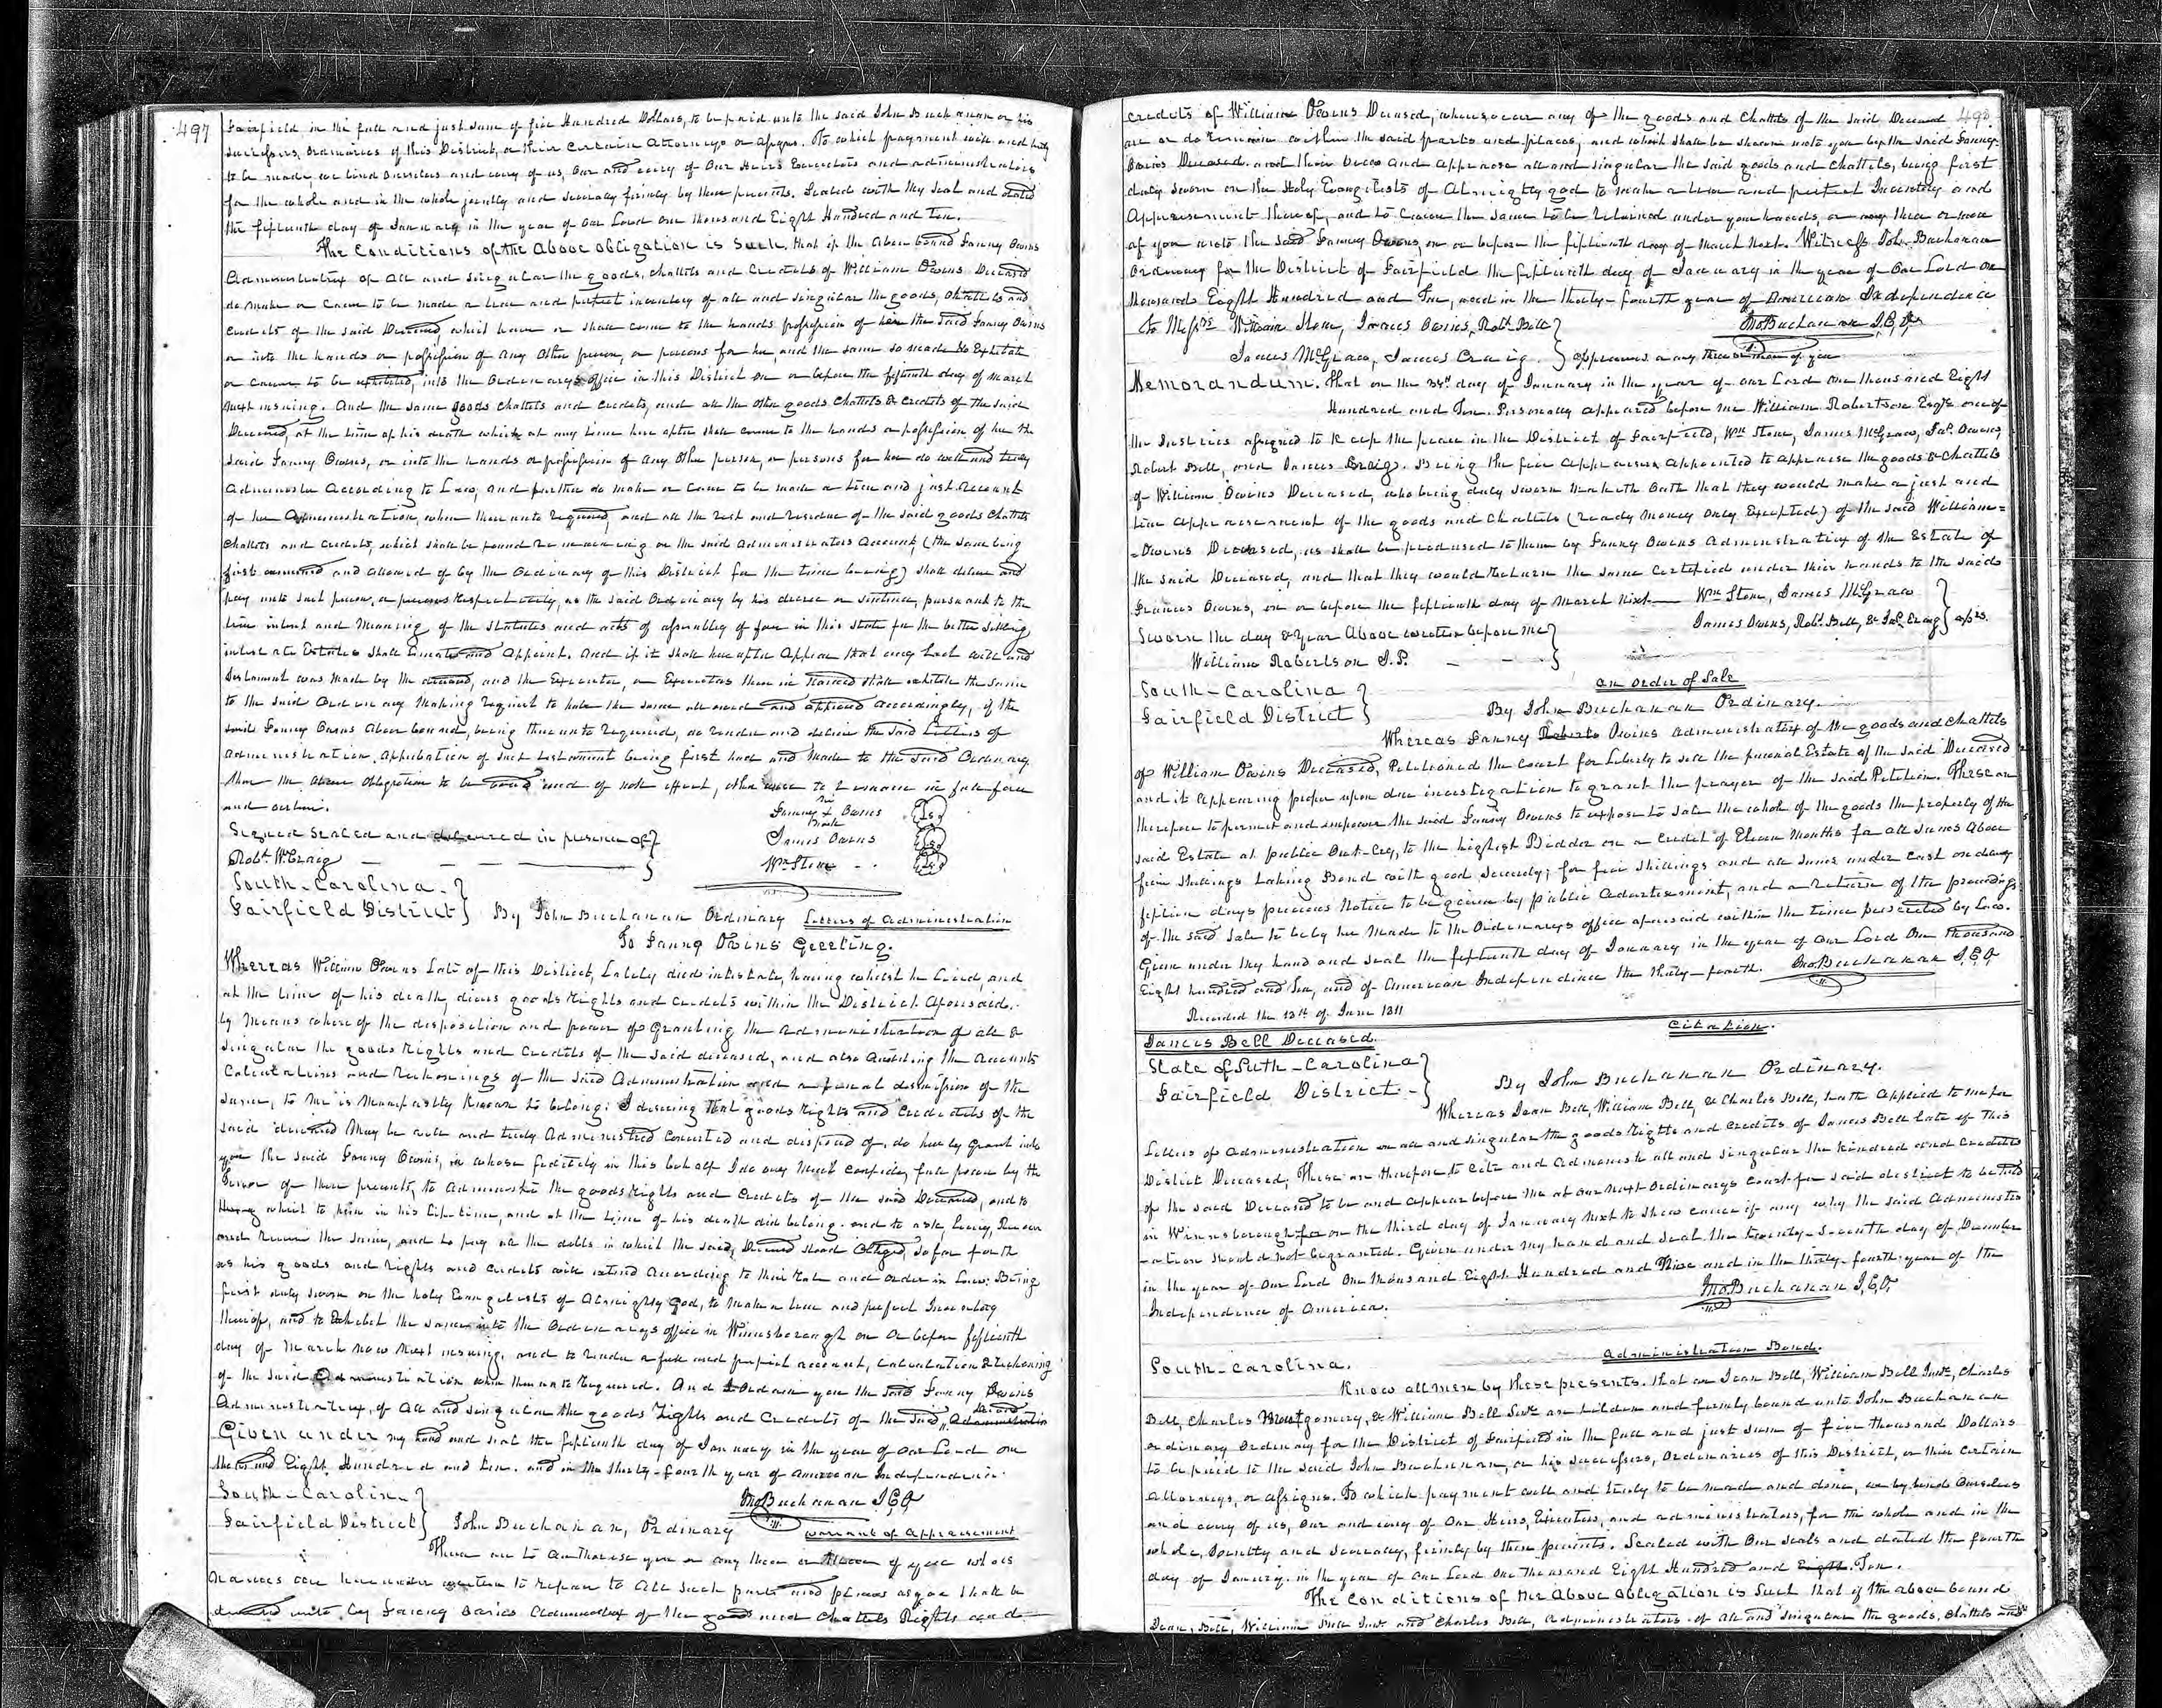 497
Fairfield in the full and just sum of five Hundred Dollars, to be paid unto the said John Buchanan or his
successors, ordinaries of this District, or their certain attorneys or assigns. To which payment well and truly
to be made, we bind ourselves and every of us, our and every of our Heirs Executors and administrators
for the whole and in the whole jointly and severally firmly by these presents. Sealed with my seal and dated
the fifteenth day of January in the year of our Lord one thousand Eight Hundred and Ten.
The Conditions of the above obligation is Such, that if the above bound Fanny Owins
Administratrix of all and singular the goods, chattels and credits of William Owens Deceased
do make or cause to be made a true and perfect inventory of all and singular the goods, chattels and
credits of the said Deceased, which have or shall come to the hands possession of her the said Fanny Owins
or into the hands or possession of any other person, or persons for her, and the same so made do Exhibit
or cause to be exhibited, into the Ordinarys office in this District on or before the fifteenth day of march
next insuing. And the same goods chattels and credits, and all the other goods chattels & credits of the said
Deceased, at the time of his death which at any time here after shall come to the hands or possession of her the
said Fanny Owens, or into the hands or possession of any other person, or persons for her do well and truly
Administer According to Law, and further do make or cause to be made a true and just account
of her administration, when thereunto required, and all the rest and residue of the said goods Chattels
Chattels and credits, which shall be found remaining on the said administrators Account, (the same being
first examined and allowed of by the ordinary of this District for the time being) shall deliver and
pay unto such person, or persons respectively, as the said Ordinary by his decree or sentence, pursuant to the
true intent and meaning of the statutes and acts of assembly of force in this state for the better settling
intestate Estates shall limit and appoint. And if it shall hereafter appear that any last will and
Testament was made by the deceased, and the Executor, or Executors there in named shall exhibit the same
to the said Ordinary making request to have the same allowed and approved accordingly, if the
said Fanny Owins above bound, being thereunto required, do render and deliver the said Letters of
administration, approbation of such testament being first had and made to the said Ordinary
then the above obligation to be void and of none effect, otherwise to remain in full force
and virtue.
Signed Sealed and delivered in presence of }
Robt. W. Craig
her
Fanny X Owins
mark
James Owens
Wm Stone
South-Carolina }
Fairfield District } By John Buchanan Ordinary Letters of Administration
To Fanny Owins Greeting.
Whereas William Owens late of this District, Lately died intestate, having whilst he lived, and
at the time of his death, divers goods rights and credits within the District aforesaid.
by means whereof the disposition and power of granting the administration of all &
singular the goods rights and credits of the said deceased, and also auditing the accounts
Calculations and Reckonings of the said Administration and a final dismission of the
same, to me is manifestly known to belong: I desiring that goods rights and credits of the
said deceased may be well and truly Administred converted and disposed of, do hereby grant unto
you the said Fanny Owins, in whose fidelity in this behalf I do very much confide, full power by the
Tenor of these presents, to administer the goods rights and credits of the said Deceased, and to
which to him in his life-time, and at the time of his death did belong. and to ask, Levy, Recover
and Receive the same, and to pay all the debts in which the said, Deceased stood obliged, so far forth
as his goods and rights and credits will extend According to their rate and order in Law: Being
first duly sworn on the holy Evangelists of Almighty God, to make a true and perfect Inventory
thereof, and to Exhibit the same into the Ordinarys office in Winnsborough on or before fifteenth
day of March now next insuing. and to render a full and perfect account, calculation & reckoning
of the said Administration when thereunto required. And I Ordain you the said Fanny Owins
Administratrix, of all and singular the goods rights and credits of the said Deceased Administration
Given under my hand and seal the fifteenth day of January in the year of our Lord one
thousand Eight Hundred and ten. and in the thirty-fourth year of American Independence.
Jno Buchanan J.C.O
South-Carolina }
Fairfield District } John Buchanan, Ordinary warrant of appraisement
These are to authorise you or any three or of you whos
names are here under written to repair to all such parts and places as you shall be
directed unto by Fanny Owins Administratrix of the goods and chattels Rights and
498
credits of William Owens Deceased, wheresoever any of the goods and chattels of the said Deceased
are or do remain within the said parts and places, and which shall be shewn unto you by the said Fanny
Owins Deceased. and there view and appraise all and singular the said goods and chattels, being first
duly sworn on the Holy Evangelists of Almighty god to make a true and perfect Inventory and
Appraisement thereof, and to cause the same to be returned under your hands, or any three or more
of you unto the said Fanny Owens, on or before the fifteenth day of March Next. Witness John Buchanan
Ordinary for the District of Fairfield the fifteenth day of January in the year of our Lord one
thousand Eight Hundred and Ten, and in the thirty-fourth year of American Independence
To Messrs William Stone, James Owins, Robt. Bell } Jno Buchanan J.C.O
James McGraw, James Craig. } appraisers or any three or more of you
Memorandum. That on the day of January in the year of our Lord one thousand Eight
Hundred and Ten. Personally appeared before me William Robertson Esqr. one of
the Justices assigned to Keep the peace in the District of Fairfield, Wm Stone, James McGraw, Jas. Owens,
Robert Bell, and James Craig. Being the five appraisers appointed to appraise the goods & chattels
of William Owins Deceased, who being duly sworn maketh oath that they would make a just and
true appraisement of the goods and chattels (ready money only Excepted) of the said William
Owens Deceased, as shall be produced to them by Fanny Owens Administratrix of the Estate of
the said Deceased, and that they would return the same certified under their hands to the said
Frances Owens, on or before the fifteenth day of March Next
Wm Stone, James McGraw
James Owens, Robt. Bell, & Jas. Craig } aprs.
Sworn the day & year above written before me }
William Robertson J.P.
South-Carolina }
Fairfield District }
an order of Sale
By John Buchanan Ordinary.
Whereas Fanny Roberts Owins administratrix of the goods and chattels
of William Owins Deceased, Petitioned the court for Liberty to sell the personal Estate of the said Deceased
and it appearing proper upon due investigation to grant the prayer of the said Petition. These are
therefore to permit and impower the said Fanny Owens to expose to sale the whole of the goods the property of the
said Estate at public Out-Cry, to the highest Bidder on a credit of Eleven Months for all sums above
five shillings taking Bond with good security; for five shillings and all sums under cash on day
fifteen days previous notice to be given by public advertisement, and a return of the proceedings
of the said sale to be by her made to the Ordinarys office aforesaid within the time prescribed by Law.
Given under my hand and seal the fifteenth day of January in the year of our Lord One thousand
Eight hundred and Ten, and of American Independence the thirty-fourth. Jno Buchanan J.C.O
Recorded the 13th of June 1811
James Bell Deceased.
Citation.
State of South-Carolina }
Fairfield District }
By John Buchanan Ordinary.
Whereas Jean Bell, William Bell, & Charles Bell, hath applied to me for
Letters of Administration on all and singular the goods rights and credits of James Bell late of this
District Deceased, These are therefore to cite and admonish all and singular the kindred and creditors
of the said Deceased to be and appear before me at our next ordinarys court for said district to be held
in Winnsborough on the third day of January next to shew cause if any why the said Administr
-ation should not be granted. Given under my hand and seal the twenty-seventh day of December
in the year of our Lord One thousand Eight Hundred and Nine and in the thirty-fourth year of the
Independence of America.
Jno Buchanan J.C.O.
South-Carolina.
Administration Bond.
Know all men by these presents. that we Jean Bell, William Bell Junr, Charles
Bell, Charles Montgomery, & William Bell Senr are holden and firmly bound unto John Buchanan
ordinary Ordinary for the District of Fairfield in the full and just sum of five thousand Dollars
to be paid to the said John Buchanan, or his successors, Ordinaries of this District, or their certain
attorneys, or assigns. To which payment well and truly to be made and done, we by bind ourselves
and every of us, our and every of our Heirs, Executors, and administrators, for the whole and in the
whole, Jointly and severally, firmly by these presents. Sealed with our seals and dated the fourth
day of January. in the year of our Lord One thousand Eight Hundred and Eight. Ten.
The Conditions of the above obligation is Such that if the above bound
Jean, Bell, William Bell Junr and Charles Bell, administrators of all and singular the goods, chattels and